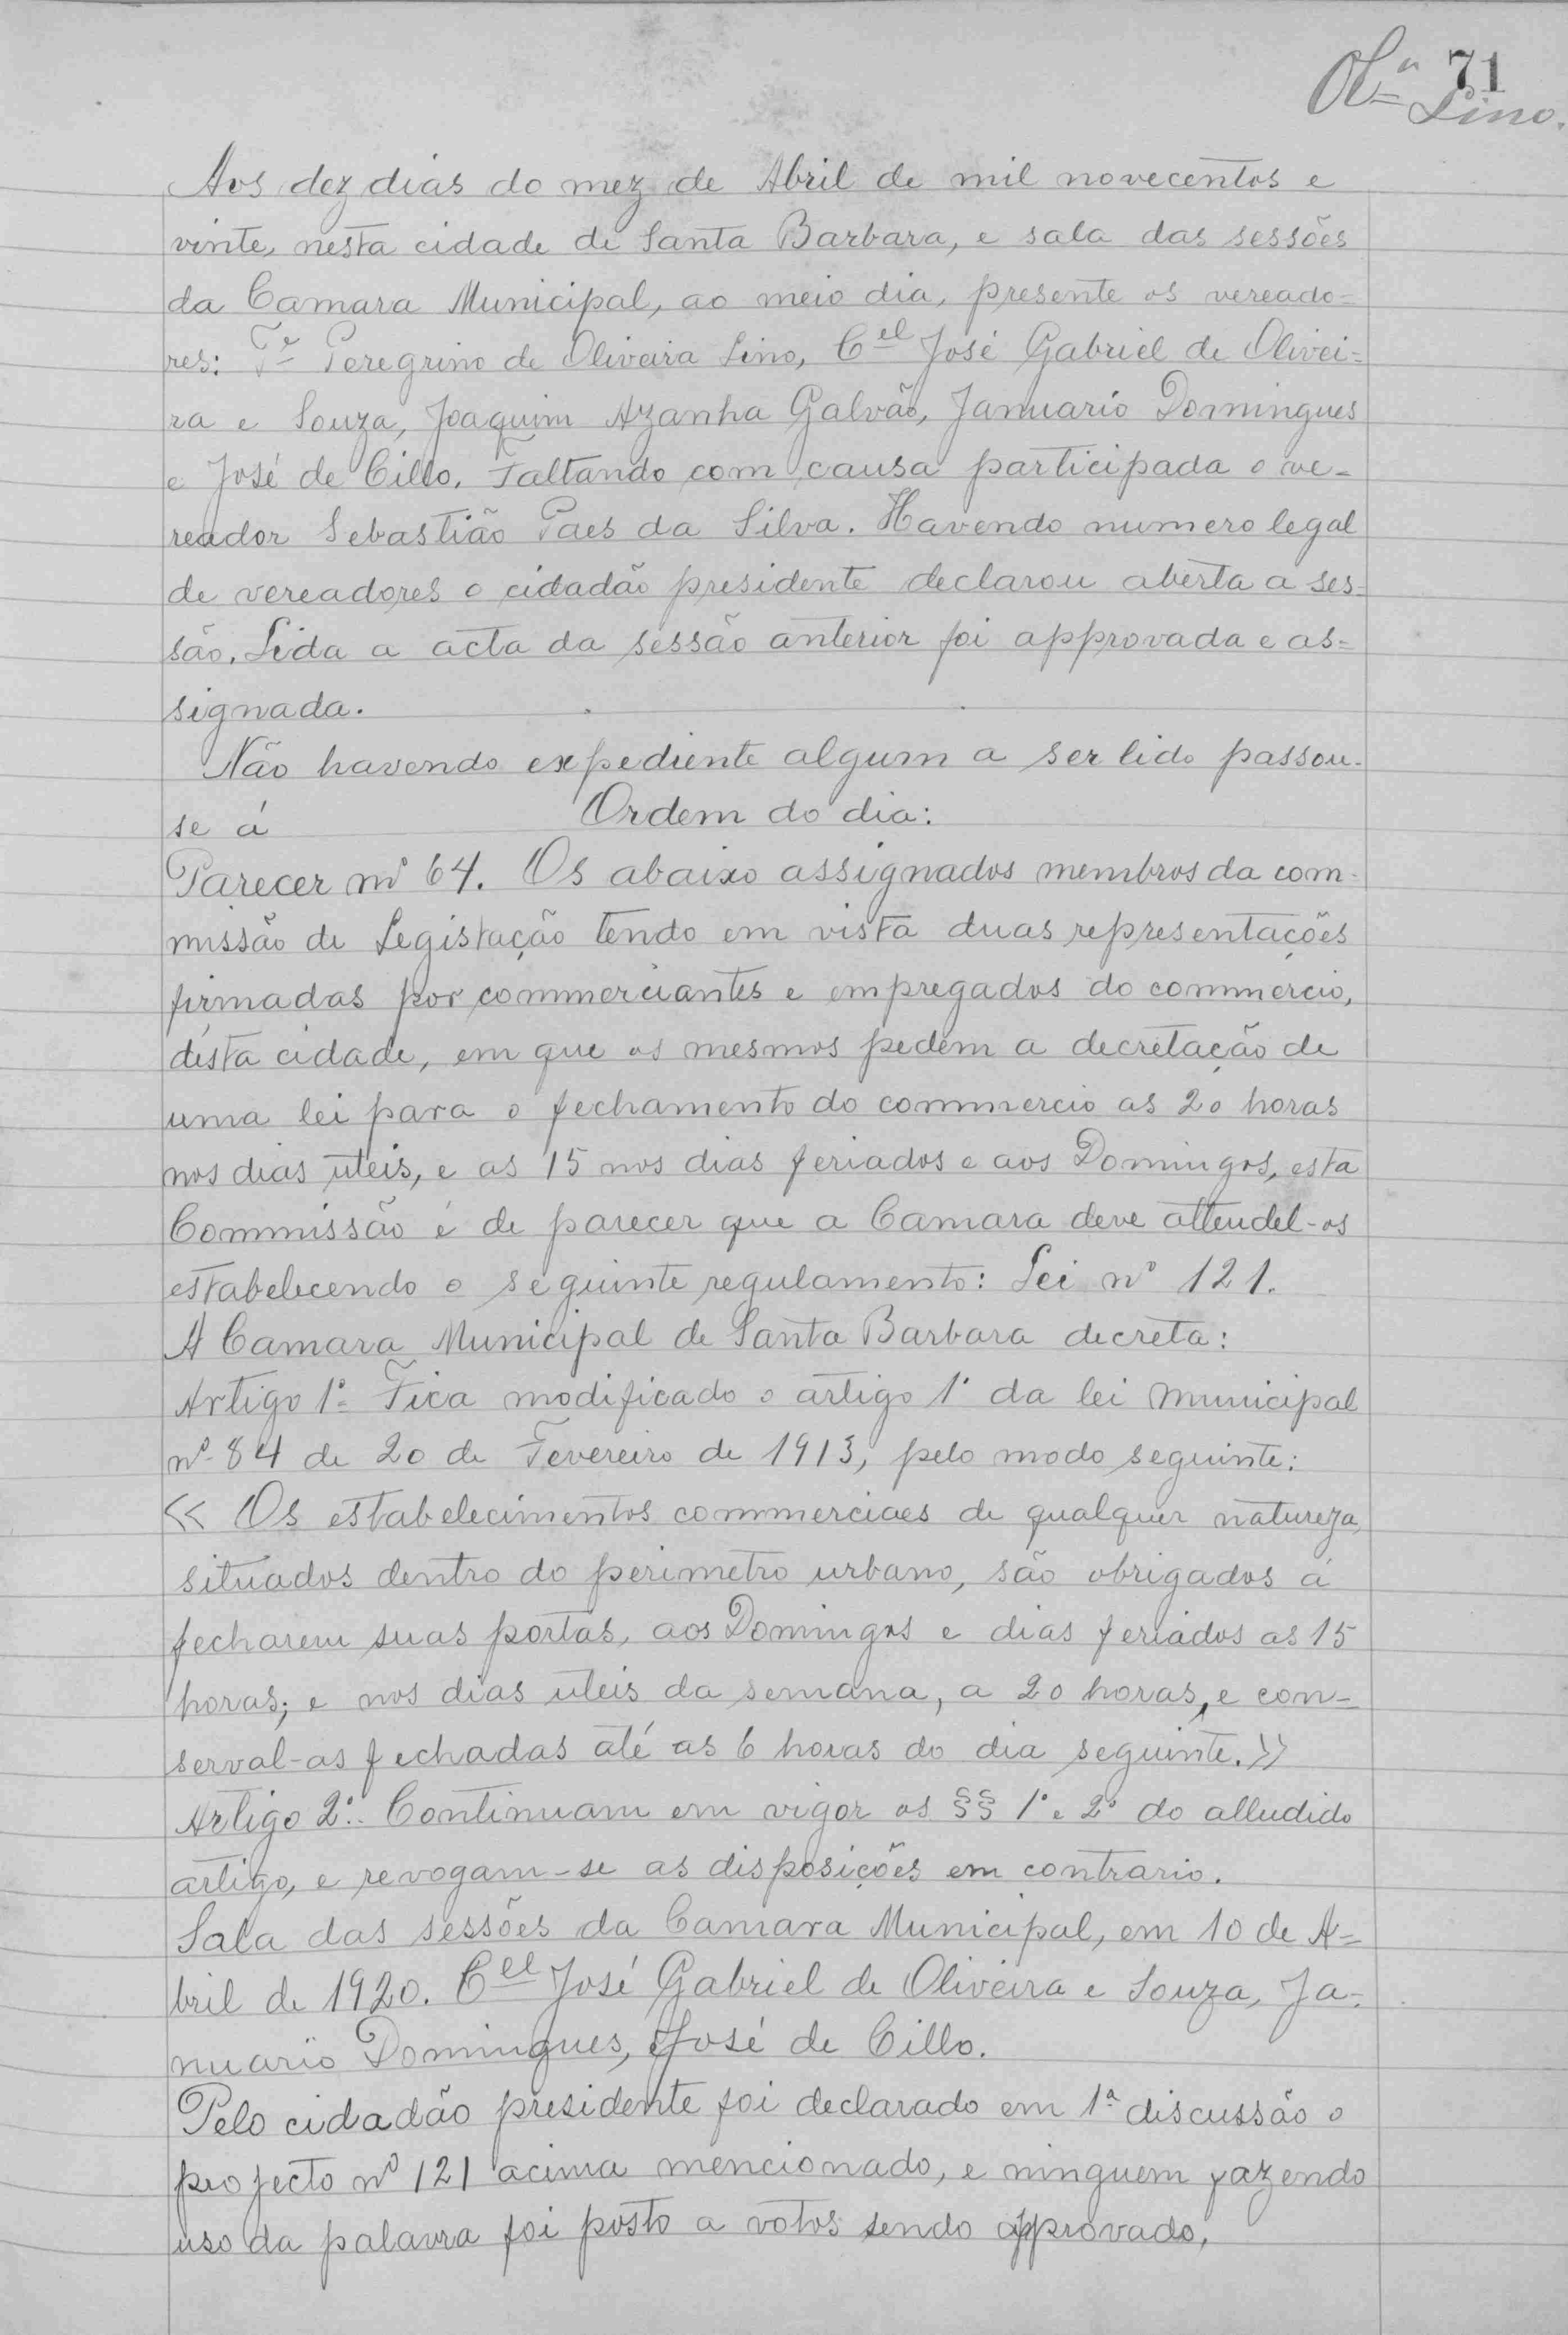 Olª 71
Lino.
Aos dez dias do mez de Abril de mil novecentos e
vinte, nesta cidade de Santa Barbara, e sala das sessões
da Camara Municipal, ao meio dia, presente os vereado=
res: Tе Peregrino de Oliveira Lino, Cel José Gabriel de Olivei=
ra e Souza, Joaquim Azanha Galvão, Januario Domingues
e José de Cillo. Faltando com causa participada o ve-
reador Sebastião Paes da Silva. Havendo numero legal
de vereadores o cidadão presidente declarou aberta a ses=
são. Lida a acta da sessão anterior foi approvada e as=
signada.
Não havendo expediente algum a ser lido passou-
se á Ordem do dia:
Parecer nº 64. Os abaixo assignados membros da com-
missão de Legistação tendo em vista duas representações
firmadas por commerciantes e empregados do commercio,
désta cidade, em que os mesmos pedem a decretação de
uma lei para o fechamento do commercio as 20 horas
nos dias uteis, e as 15 nos dias feriados e aos Domingos, esta
Commissão é de parecer que a Camara deve attendel-os
estabelecendo o seguinte regulamento: Lei nº 121.
A Camara Municipal de Santa Barbara decreta:
Artigo 1º Fica modificado o artigo 1º da lei municipal
nº 84 de 20 de Fevereiro de 1913, pelo modo seguinte:
« Os estabelecimentos commerciaes de qualquer natureza,
situados dentro do perimetro urbano, são obrigados á
fecharem suas portas, aos Domingos e dias feriados as 15
horas; e nos dias uteis da semana, a 20 horas, e con-
serval-as fechadas até as 6 horas do dia seguinte.»
Artigo 2º. Continuam em vigor os §§ 1º e 2º do alludido
artigo, e revogam-se as disposições em contrario.
Sala das sessões da Camara Municipal, em 10 de A=
bril de 1920. Cel José Gabriel de Oliveira e Souza, Ja=
nuario Domingues, José de Cillo.
Pelo cidadão presidente foi declarado em 1ª discussão o
projecto nº 121 acima mencionado, e ninguem fazendo
uso da palavra foi posto a votos sendo approvado,